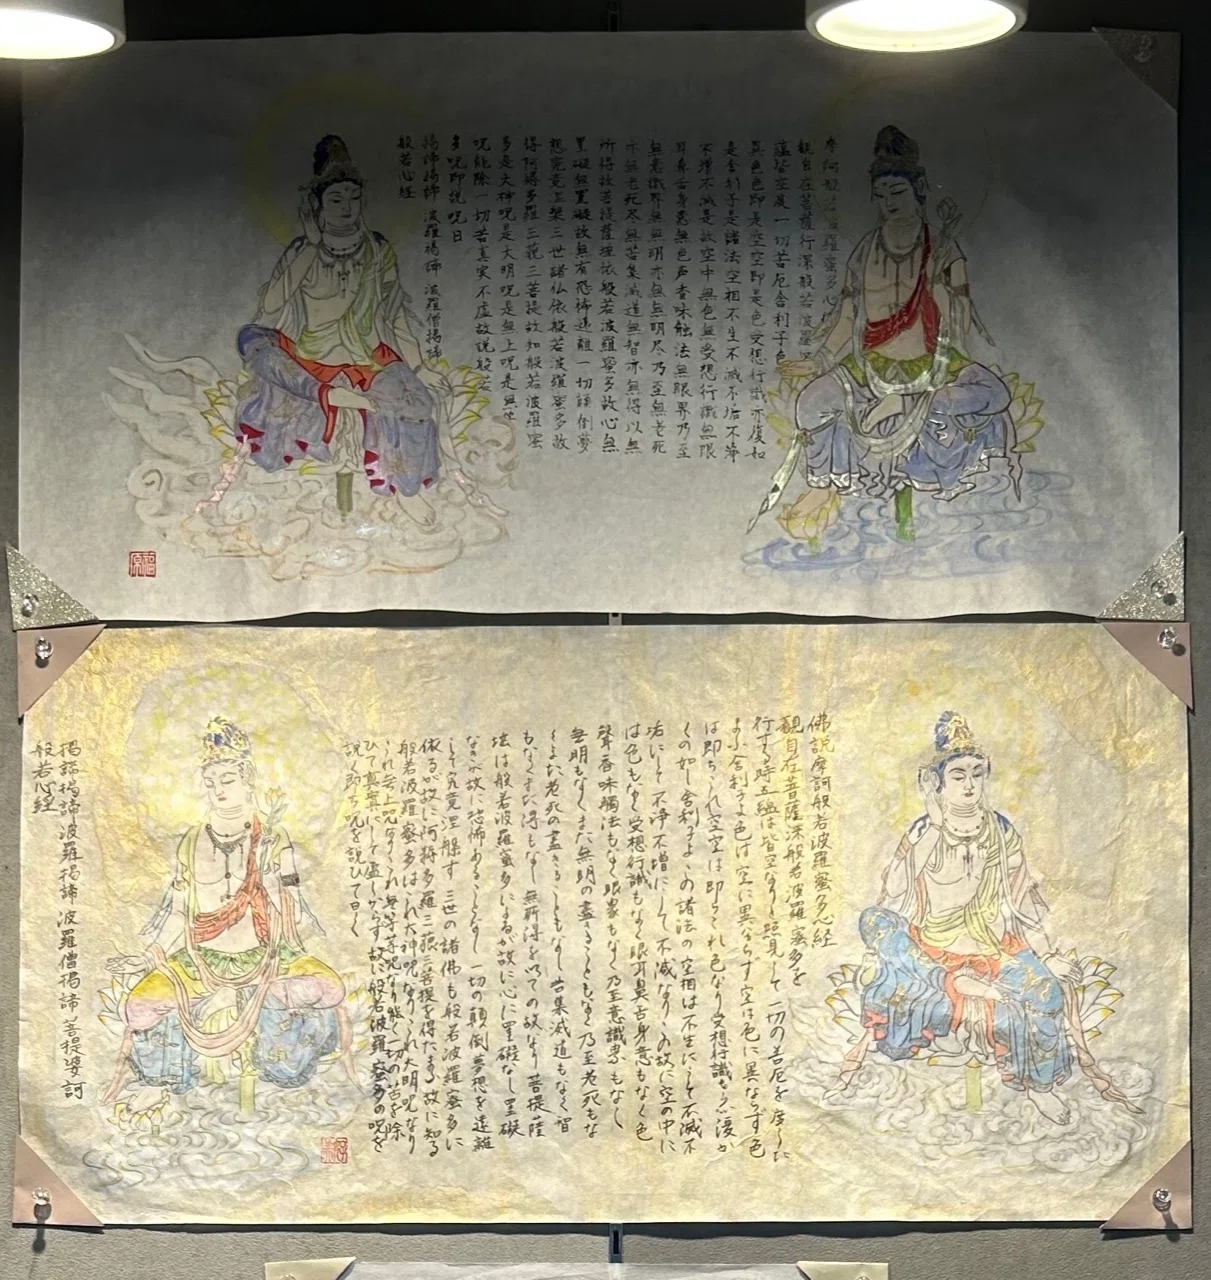 摩訶般若波羅蜜多心
観自在菩薩行深般若波羅
蘊皆空度一切苦厄舎利子色
異色色即是空空即是色受想行識亦復如
是舎利子是諸法空相不生不滅不垢不浄
不増不減是故空中無色無受想行識無眼
耳鼻舌身意無色声香味触法無眼界乃至
無意識界無無明亦無無明尽乃至無老死
亦無老死尽無苦集滅道無智亦無得以無
所得故菩提薩埵依般若波羅蜜多故心無
罣礙無罣礙故無有恐怖遠離一切顛倒夢
想究竟涅槃三世諸仏依般若波羅蜜多故
得阿耨多羅三藐三菩提故知般若波羅蜜
多是大神呪是大明呪是無上呪是無
呪能除一切苦真実不虚故説般若
多呪即説呪曰
掲諦掲諦 波羅掲諦 波羅僧掲諦
般若心経
福原
佛説摩訶般若波羅蜜多心経
観自在菩薩深般若波羅蜜多を
行ずる時五蘊は皆空なりと照見して一切の苦厄を度した
まふ舎利子よ色は空に異ならず空は色に異ならず色
は即ちこれ空空は即ちこれ色なり受想行識もまた復か
くの如し舎利子よこの諸法の空相は不生にして不滅不
垢にして不浄不増にして不減なりこの故に空の中に
は色もなく受想行識もなく眼耳鼻舌身意もなく色
聲香味觸法もなく眼界もなく乃至意識界もなし
無明もなくまた無明の盡きることもなく乃至老死もな
くまた老死の盡きることもなし苦集滅道もなく智
もなくまた得もなし無所得を以ての故なり菩提薩
埵は般若波羅蜜多によるが故に心に罣礙なし罣礙
なきが故に恐怖あることなし一切の顛倒夢想を遠離
して究竟涅槃す三世の諸佛も般若波羅蜜多に
依るが故に阿耨多羅三藐三菩提を得たまふ故に知る
般若波羅蜜多はこれ大神呪なりこれ大明呪なり
これ無上呪なりこれ無等等呪なり能く一切の苦を除
ひて真實にして虚しからず故に般若波羅蜜多の呪を
説く即ち呪を説ひて曰く
掲諦掲諦波羅掲諦波羅僧掲諦菩提婆訶
般若心経